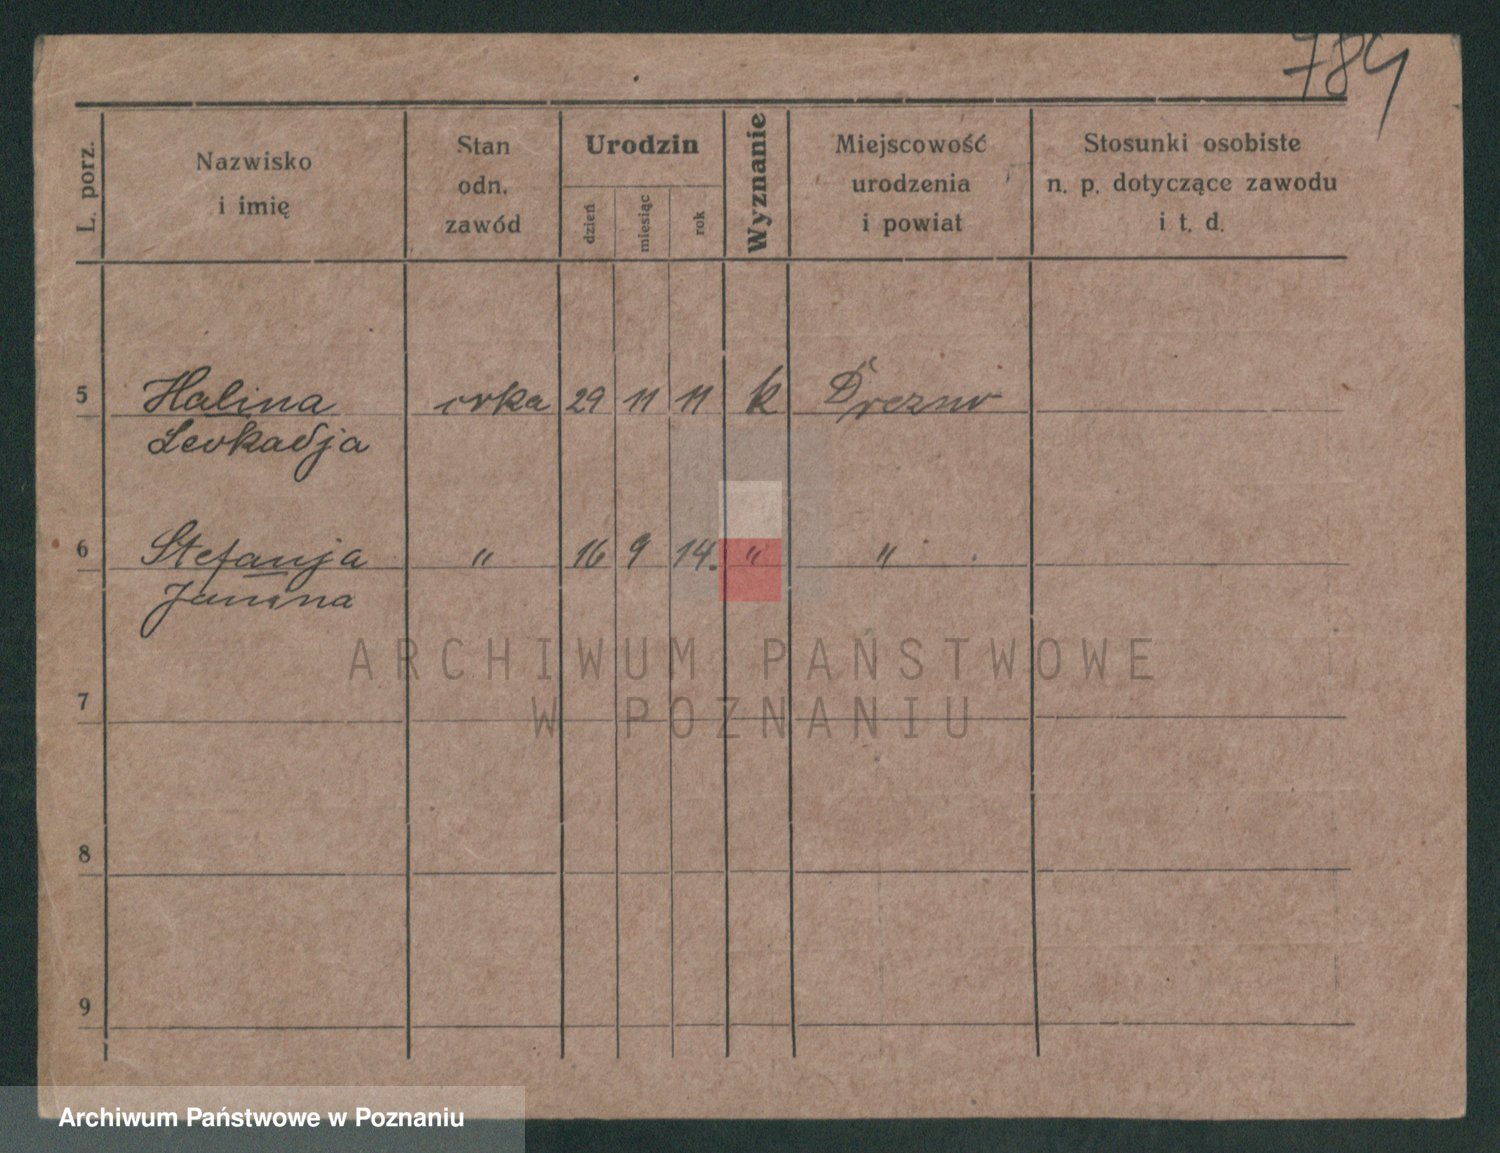 784
L. porz.
Nazwisko
i imię
Stan
odn.
zawód
Urodzin
dzień
miesiąc
rok
Wyznanie
Miejscowość
urodzenia
i powiat
Stosunki osobiste
n. p. dotyczące zawodu
i t. d.
5 Halina córka 29 11 11 k Drezno
Leokadja
6 Stefanja " 16 9 14. " "
Janina
ARCHIWUM PAŃSTWOWE
W POZNANIU
7
8
9
Archiwum Państwowe w Poznaniu